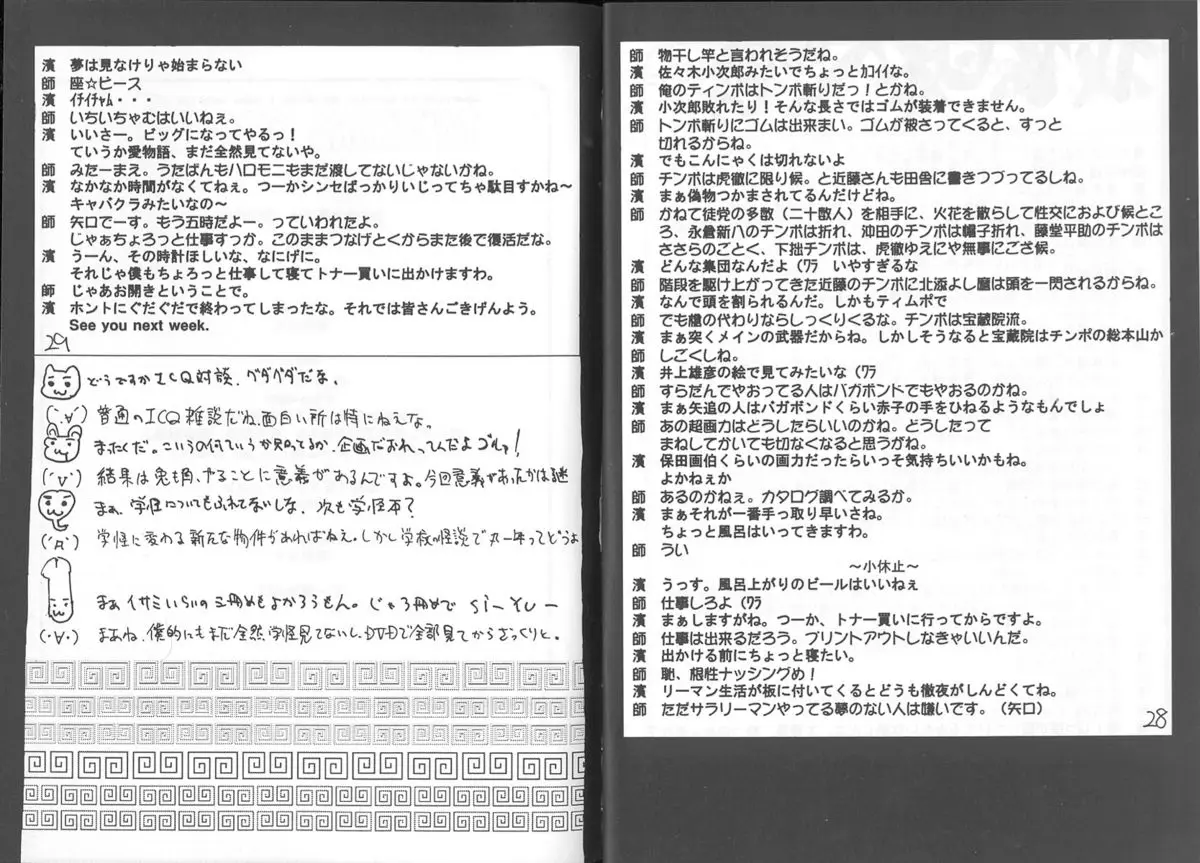 師 物干し竿と言われそうだね。
濱 佐々木小次郎みたいでちょっとｶｺｲｲな。
師 俺のティンポはトンボ斬りだっ！とかね。
濱 小次郎敗れたり！そんな長さではゴムが装着できません。
師 トンボ斬りにゴムは出来まい。ゴムが被さってくると、すっと
切れるからね。
濱 でもこんにゃくは切れないよ
師 チンポは虎徹に限り候。と近藤さんも田舎に書きつづってるしね。
濱 まぁ偽物つかまされてるんだけどね。
師 かねて徒党の多数（二十数人）を相手に、火花を散らして性交におよび候とこ
ろ、永倉新八のチンポは折れ、沖田のチンポは帽子折れ、藤堂平助のチンポは
ささらのごとく、下拙チンポは、虎徹ゆえにや無事にござ候。
濱 どんな集団なんだよ（ﾜﾗ　いやすぎるな
師 階段を駆け上がってきた近藤のチンポに北添よし麿は頭を一閃されるからね。
濱 なんで頭を割られるんだ。しかもティムポで
師 でも槍の代わりならしっくりくるな。チンポは宝蔵院流。
濱 まぁ突くメインの武器だからね。しかしそうなると宝蔵院はチンポの総本山か
師 しごくしね。
濱 井上雄彦の絵で見てみたいな（ﾜﾗ
師 すらだんでやおってる人はバガボンドでもやおるのかね。
濱 まぁ矢追の人はバガボンドくらい赤子の手をひねるようなもんでしょ
師 あの超画力はどうしたらいいのかね。どうしたって
まねしてかいても切なくなると思うがね。
濱 保田画伯くらいの画力だったらいっそ気持ちいいかもね。
よかねぇか
師 あるのかねぇ。カタログ調べてみるか。
濱 まぁそれが一番手っ取り早いさね。
ちょっと風呂はいってきますわ。
師 うい
～小休止～
濱 うっす。風呂上がりのビールはいいねぇ
師 仕事しろよ（ﾜﾗ
濱 まぁしますがね。つーか、トナー買いに行ってからですよ。
師 仕事は出来るだろう。プリントアウトしなきゃいいんだ。
濱 出かける前にちょっと寝たい。
師 恥、根性ナッシングめ！
濱 リーマン生活が板に付いてくるとどうも徹夜がしんどくてね。
師 ただサラリーマンやってる夢のない人は嫌いです。（矢口）
28
濱 夢は見なけりゃ始まらない
師 座☆ピース
濱 ｲﾁｲﾁｬﾑ・・・
師 いちいちゃむはいいねぇ。
濱 いいさー。ビッグになってやるっ！
ていうか愛物語、まだ全然見てないや。
師 みたーまえ。うたばんもハロモニもまだ渡してないじゃないかね。
濱 なかなか時間がなくてねぇ。つーかシンセばっかりいじってちゃ駄目すかね～
キャバクラみたいなの～
師 矢口でーす。もう五時だよー。っていわれたよ。
じゃぁちょろっと仕事すっか。このままつなげとくからまた後で復活だな。
濱 うーん、その時計ほしいな、なにげに。
それじゃ僕もちょろっと仕事して寝てトナー買いに出かけますわ。
師 じゃあお開きということで。
濱 ホントにぐだぐだで終わってしまったな。それでは皆さんごきげんよう。
See you next week.
29
どうですかICQ対談、グダグダだな。
普通のICQ雑談だね、面白い所は特にねえな。
まったくだ。こういうの何ていうか知ってるか、企画だおれ、ってんだよ
結果は兎も角、やることに意義があるんですよ。今回意義があったかは謎
まぁ、学怪についてもふれてないしな、次も学怪本？
学怪に変わる新たな物件があればねえ。しかし学校の怪談で丸一年ってどうよ
まぁイサミいらいの三冊めもよかろうもん。じゃ3冊めで Si-Yu-
まあね、僕的にもまだ全然学怪見てないし、DVDで全部見てからざっくりと。